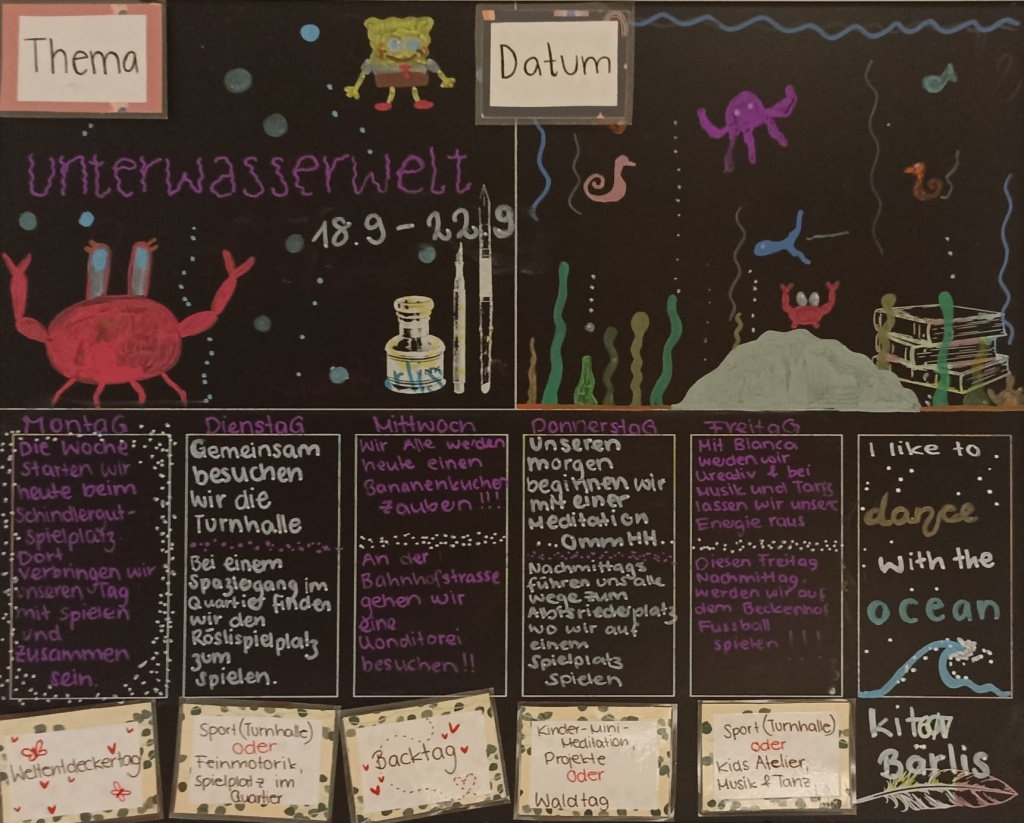 Thema
Datum
unterwasserwelt
18.9 - 22.9
Montag
Die Woche
starten wir
heute beim
Schindlergut-
spielplatz.
Dort
verbringen wir
unseren Tag
mit spielen
und
zusammen
sein.
Dienstag
Gemeinsam
besuchen
wir die
Turnhalle
Bei einem
Spaziergang im
Quartier finden
wir den
Röslispielplatz
zum
spielen.
Mittwoch
Wir Alle werden
heute einen
Bananenkuchen
zauben!!!
An der
Bahnhofstrasse
gehen wir
eine
Konditorei
besuchen!!
Donnerstag
Unseren
morgen
beginnen wir
mit einer
Meditation
...OmmHH..
Nachmittags
führen uns alle
wege zum
Albisriederplatz
wo wir auf
einem
Spielplatz
spielen
Freitag
Mit Bianca
werden wir
kreativ & bei
Musik und Tanz
lassen wir unsere
Energie raus
Diesen Freitag
Nachmittag,
werden wir auf
dem Beckenhof
Fussball
spielen!!!
I like to
dance
with the
ocean
Weltentdeckertag
Sport (Turnhalle)
oder
Feinmotorik,
Spielplatz im
Quartier
Backtag
Kinder-Mini-
Meditation,
Projekte
Oder
Waldtag
Sport (Turnhalle)
oder
Kids Atelier,
Musik & Tanz
Bärlis